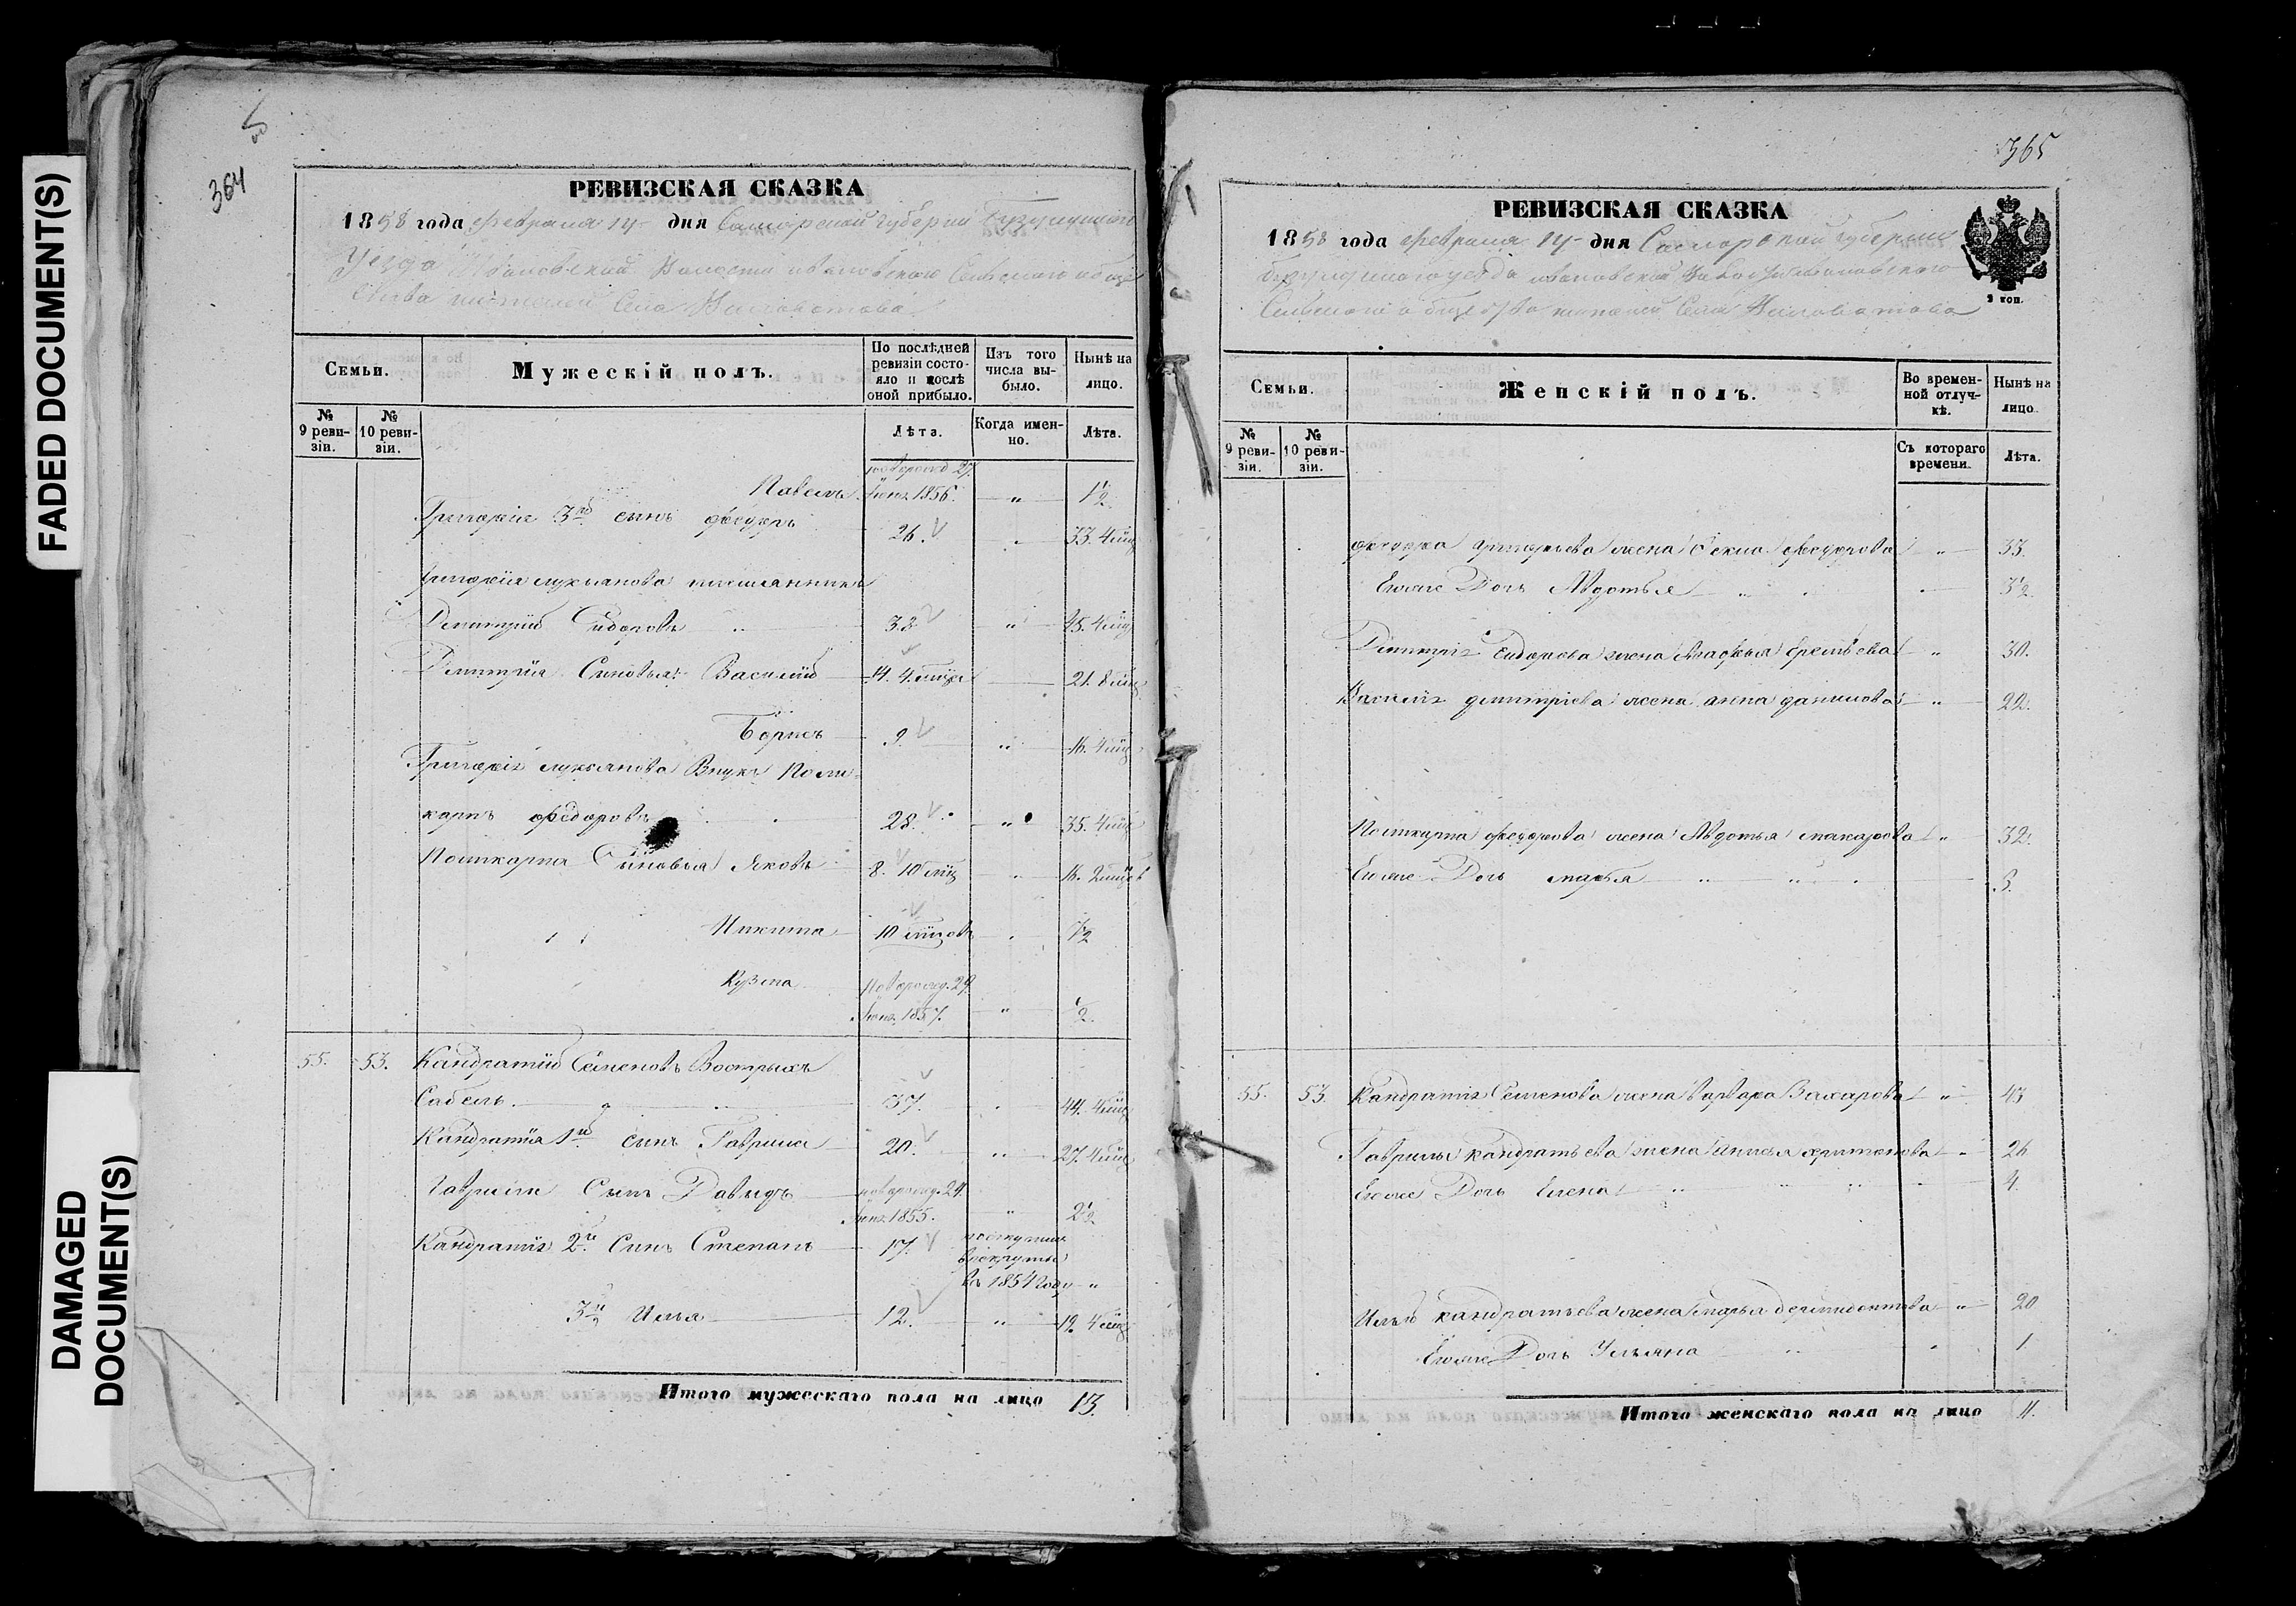 FADED DOCUMENT(S)
DAMAGED
DOCUMENT(S)
364
РЕВИЗСКАЯ СКАЗКА
1858 года Февраля 14 дня Самарской губернии Бузулукского
Уезда Ивановской Волости Ивановского Сельского обще
ства жителей Села
Семьи.
Мужескій полъ.
По послѣдней ревизіи состояло и послѣ оной прибыло.
Изъ того числа выбыло.
Нынѣ на лицо.
№ 9 ревизіи.
№ 10 ревизіи.
Лѣта.
Когда именно.
Лѣта.
Павелъ новорожд 27 1856. " 1½
Григорія 3й сынъ Федоръ 26. 33. 4 мцъ
Григорія Лукьянова племянникъ
Димитрій Сидоровъ " 38 " 45. 4 мцъ
Димитрія Сыновья: Василій 14. 4 мцъ 21. 8 мцъ
Борисъ 9. " 16. 4 мцъ
Григорія Лукьянова Внукъ Поли-
карпъ Федоровъ 28. " 35. 4 мцъ
Поликарпа Сыновья Яковъ 8. 10 мцъ 16. 2 мцъ
Никита 10 мцовъ 7½
Кузма новорожд. 29.
1857. " ½
55. 53. Кандратій Семеновъ Вострыхъ
Сабель. 37. 44. 4 мцъ
Кандратія 1й сынъ Гаврила 20. " 27. 4 мцъ
Гаврилы Сынъ Давыдъ новорожд. 24.
1855. " 2½
Кандратія 2й Сынъ Степанъ 17. поступилъ
в рекруты
въ 1854 году "
3й Илья 12. " 19. 4 мцъ
Итого мужескаго пола на лицо 13.
365
РЕВИЗСКАЯ СКАЗКА
1858 года Февраля 14 дня Самарской губернии
Бузулукского уезда Ивановской Волости Ивановского
Сельского общества жителей Села
3 коп.
Семьи.
Женскій полъ.
Во временной отлучкѣ.
Нынѣ на лицо.
№ 9 ревизіи.
№ 10 ревизіи.
Съ котораго времени.
Лѣта.
Федора Григорьева жена Фекла Федорова " 33.
Егоже Дочь Авдотья " 3½
Димитрія Сидорова жена Агафья Еремѣева " 30.
Василія Димитріева жена Анна Данилова " 22.
Поликарпа Федорова жена Авдотья Макарова " 32.
Егоже Дочь Марья " " 3.
55. 53. Кандратія Семенова жена Варвара Захарова " 43
Гаврилы Кандратьева жена Харитонова " 26
Егоже Дочь Елена " " 4
Ильи Кандратьева жена Марья " 20
Егоже Дочь Ульяна " 1
Итого женскаго пола на лицо 11.